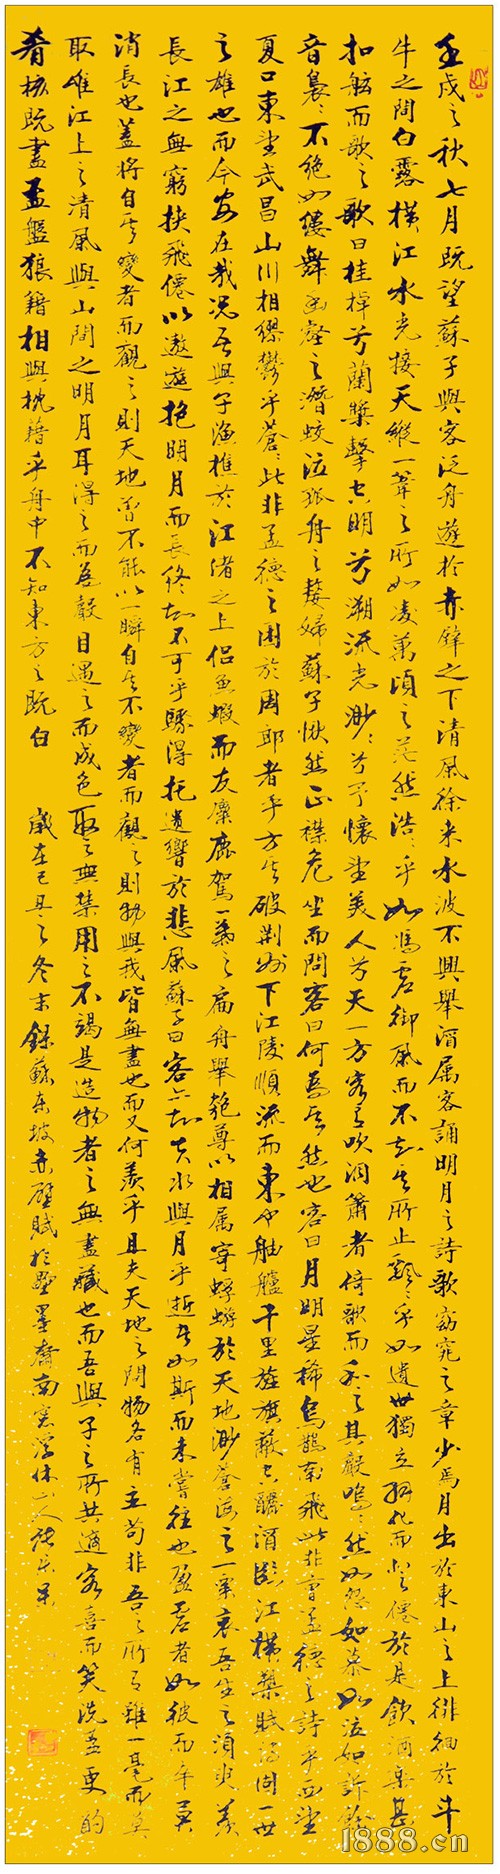 壬戌之秋七月既望蘇子與客泛舟遊於赤壁之下清風徐来水波不興舉酒属客誦明月之詩歌窈窕之章少焉月出於東山之上徘徊於斗
牛之間白露横江水光接天縱一葦之所如凌萬頃之茫然浩浩乎如馮虚御風而不知其所止飄飄乎如遺世獨立羽化而登僊於是飲酒樂甚
扣舷而歌之歌曰桂棹兮蘭槳擊空明兮溯流光渺渺兮予懷望美人兮天一方客有吹洞簫者倚歌而和之其聲嗚嗚然如怨如慕如泣如訴餘
音裊裊不绝如縷舞幽壑之潛蛟泣孤舟之嫠婦蘇子愀然正襟危坐而問客曰何為其然也客曰月明星稀烏鵲南飛此非曹孟德之詩乎西望
夏口東望武昌山川相缪鬱乎蒼蒼此非孟德之困於周郎者乎方其破荆州下江陵順流而東也舳艫千里旌旗蔽空釃酒臨江横槊賦詩固一世
之雄也而今安在哉况吾與子漁樵於江渚之上侣魚蝦而友麋鹿駕一葉之扁舟舉匏尊以相属寄蜉蝣於天地渺蒼海之一粟哀吾生之須臾羨
長江之無窮挟飛僊以遨遊抱明月而長終知不可乎驟得托遺響於悲風蘇子曰客亦知夫水與月乎逝者如斯而未嘗往也盈虚者如彼而卒莫
消長也蓋将自其變者而觀之則天地曾不能以一瞬自其不變者而觀之則物與我皆無盡也而又何羨乎且夫天地之間物各有主苟非吾之所有雖一毫而莫
取唯江上之清風與山間之明月耳得之而為聲目遇之而成色取之無禁用之不竭是造物者之無盡藏也而吾與子之所共適客喜而笑洗盏更酌
肴核既盡盃盤狼籍相與枕藉乎舟中不知東方之既白 歲在己丑之冬末錄蘇东坡赤壁賦於墨齋南窗浮休山人
1888.cn